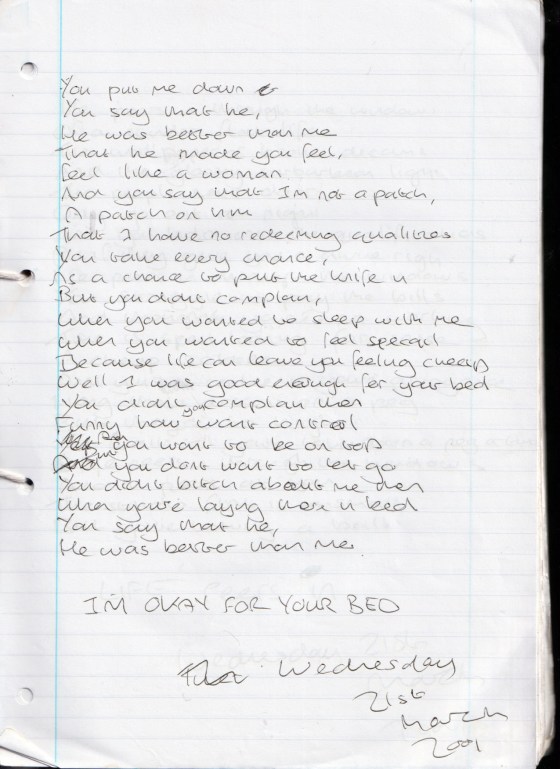 You put me down
You say that he,
He was better than me
That he made you feel,
Feel like a woman
And you say that I'm not a patch,
A patch on him
That I have no redeeming qualities
You take every chance,
As a chance to put the knife in
But you didnt complain,
When you wanted to sleep with me
When you wanted to feel special
Because life can leave you feeling cheap
Well I was good enough for your bed
You didnt complain then
Funny how you want control
you want to be on top
But you dont want to let go
You didnt bitch about me then
When you're laying there in bed
You say that he,
He was better than me.
I'M OKAY FOR YOUR BED
Wednesday
21st
March
2001